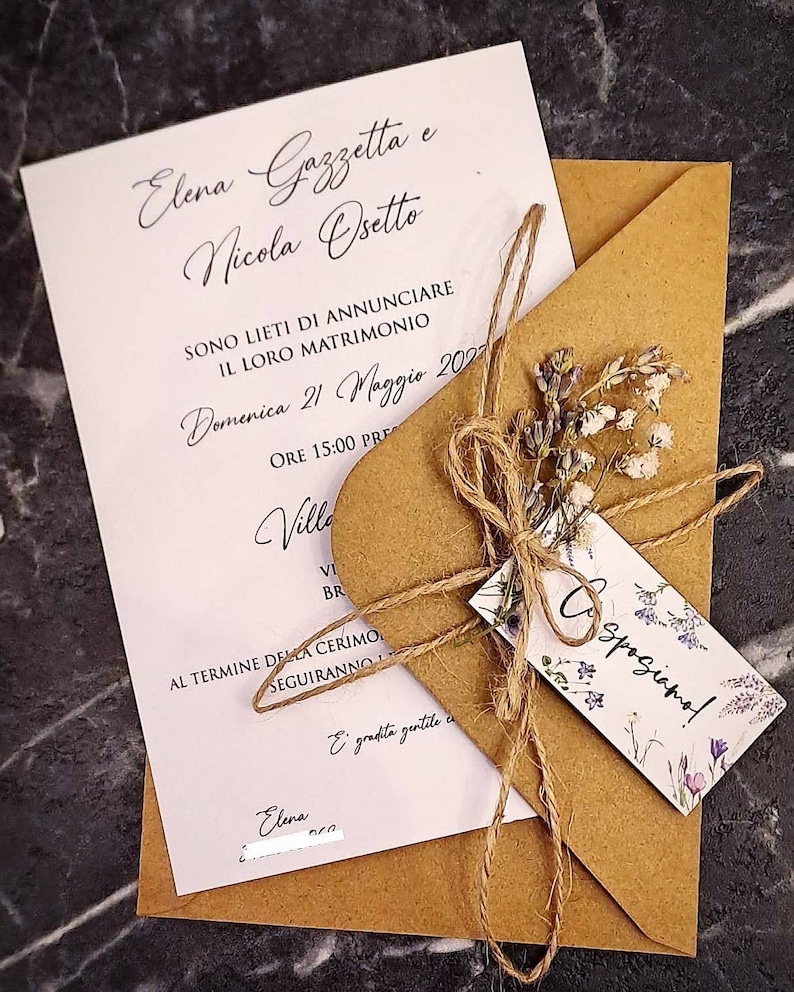 Elena Gazzetta e
Nicola Osetto
SONO LIETI DI ANNUNCIARE
IL LORO MATRIMONIO
Domenica 21 Maggio
ORE 15:00
AL TERMINE DELLA
SEGUIRANNO
E' gradita gentile
Elena
Ci sposiamo!